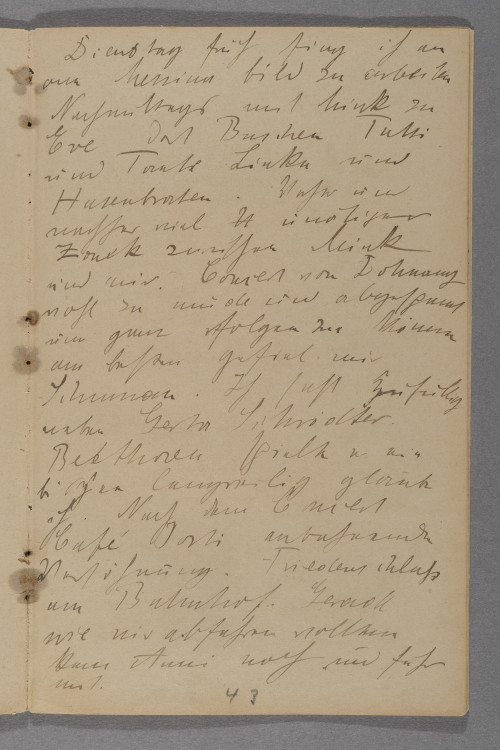 Dienstag früh fing ich an
am Messina bild zu arbeiten
Nachmittags mit Mink zu
Eve dort Buschen Tutti
und Tante Linka und
Hasenbraten. Vorher und
nachher viel unötiger
Zank zwischen Mink
und mir. Concert von Dohnany
wohl zu müde und abgespannt
um ganz folgen zu können
am besten gefiel mir
Schumann. Ich saß zufällig
neben Gerta Schrödter.
Beethoven spielte er ein
bischen langweilig glaub
ich. Nach dem Concert
Café Josti anbahnende
Versöhnung. Friedenschluß
am Bahnhof. Gerade
wie wir abfahren wollten
kam Anni noch und fuhr
mit.
43